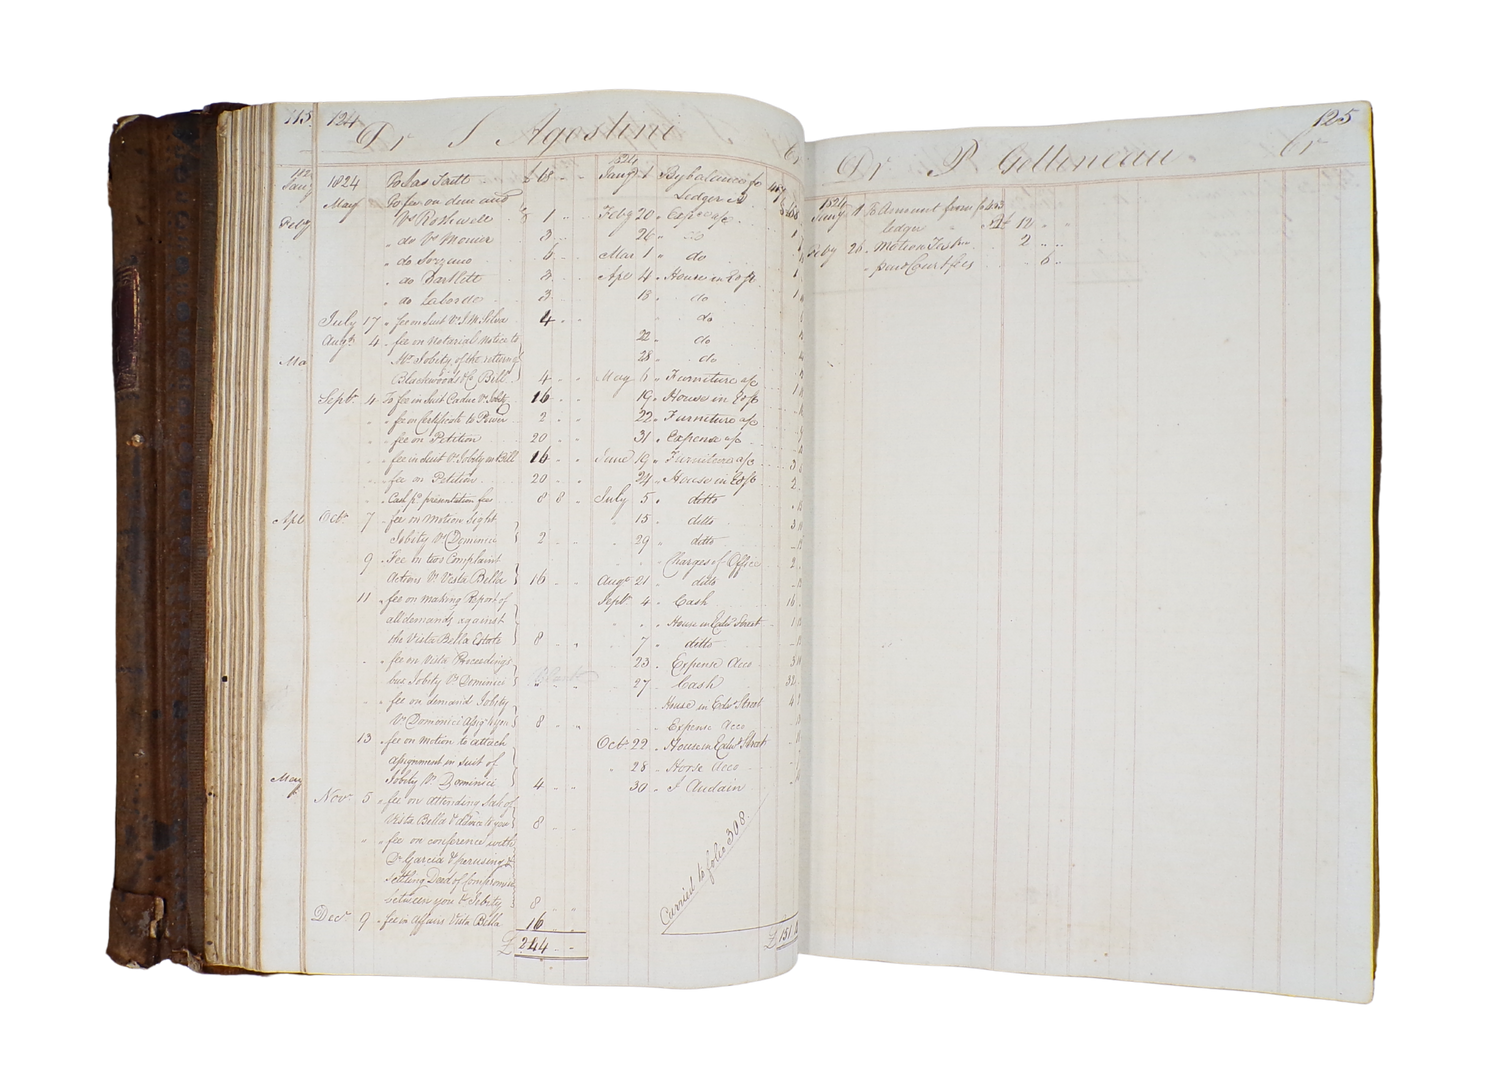 115. 124
Dr S Agostini Cr
1824
1824 To Jas Scott £68 " "
May To fee on dem and
Vs Rothwell 1 " "
" do Vs Monier 3 " "
" do Sorzano 6 " "
" do Bartlett 3 " "
" do Laborde 3 " "
July 17 " fee in Suit Vs J M Silva 4 " "
Augt 4 " fee in Notarial Notice to
Mr Jobity of the return of
Blackwoods & Co Bill 4 " "
Septr 4 To fee in Suit Cadue Vs Jobity 16 " "
" " fee on Certificate to Power 2 " "
" " fee on Petition 20 " "
" " fee in Suit Vs Jobity on Bill 16 " "
" " fee on Petition 20 " "
" " Cash pd presentation fees 8 8 "
Octr 7 " fee on Motion
Jobity Vs Dominici 2 " "
9 " Fee in two Complaint
Actions Vs Vista Bella 16 " "
11 " fee on making Report of
all demands against
the Vista Bella Estate 8 " "
" " fee on Vista Proceedings
Jobity Vs Dominici " "
" " fee on demand Jobity
Vs Dominici 8 " "
13 " fee on Motion to attach
assignment in suit of
Jobity Vs Dominici 4 " "
Novr 5 " fee on attending Sale of
Vista Bella & advice to you 8 " "
" " fee on conference with
Dr Garcia & perusing &
settling Deed of Compromise
between you & Jobity 8 " "
Decr 9 " fee in affairs Vista Bella 16 " "
£244 " "
1824
Jany 1 By balance fo
Ledger A
Feby 20 " Expse a/c
26 " do
Mar 1 " do
Apl 4 " House in Eo St
18 " do
" do
22 " do
28 " do
May 6 " Furniture a/c
19 " House in Eo St
22 " Furniture a/c
31 " Expense a/c
June 19 " Furniture a/c
24 " House in Eo St
July 5 " ditto
15 " ditto
29 " ditto
" Charges of Office
Augt 21 " ditto
Septr 4 " Cash
" " House in Edwd Street
7 " ditto
23 " Expense Acco
27 " Cash
House in Edwd Street
Expense Acco
Octr 22 " House in Edwd Street
28 " Horse Acco
30 " J Audain
Carried to folio 308.
£151
Jany
Feby
Ma
Apl
May
125
Dr P Gellineau Cr
1824
Jany 1 To Amount from fo
Ledger A £12 "
Feby 26 " Motion 2 " "
" pend Court fees " 6 "